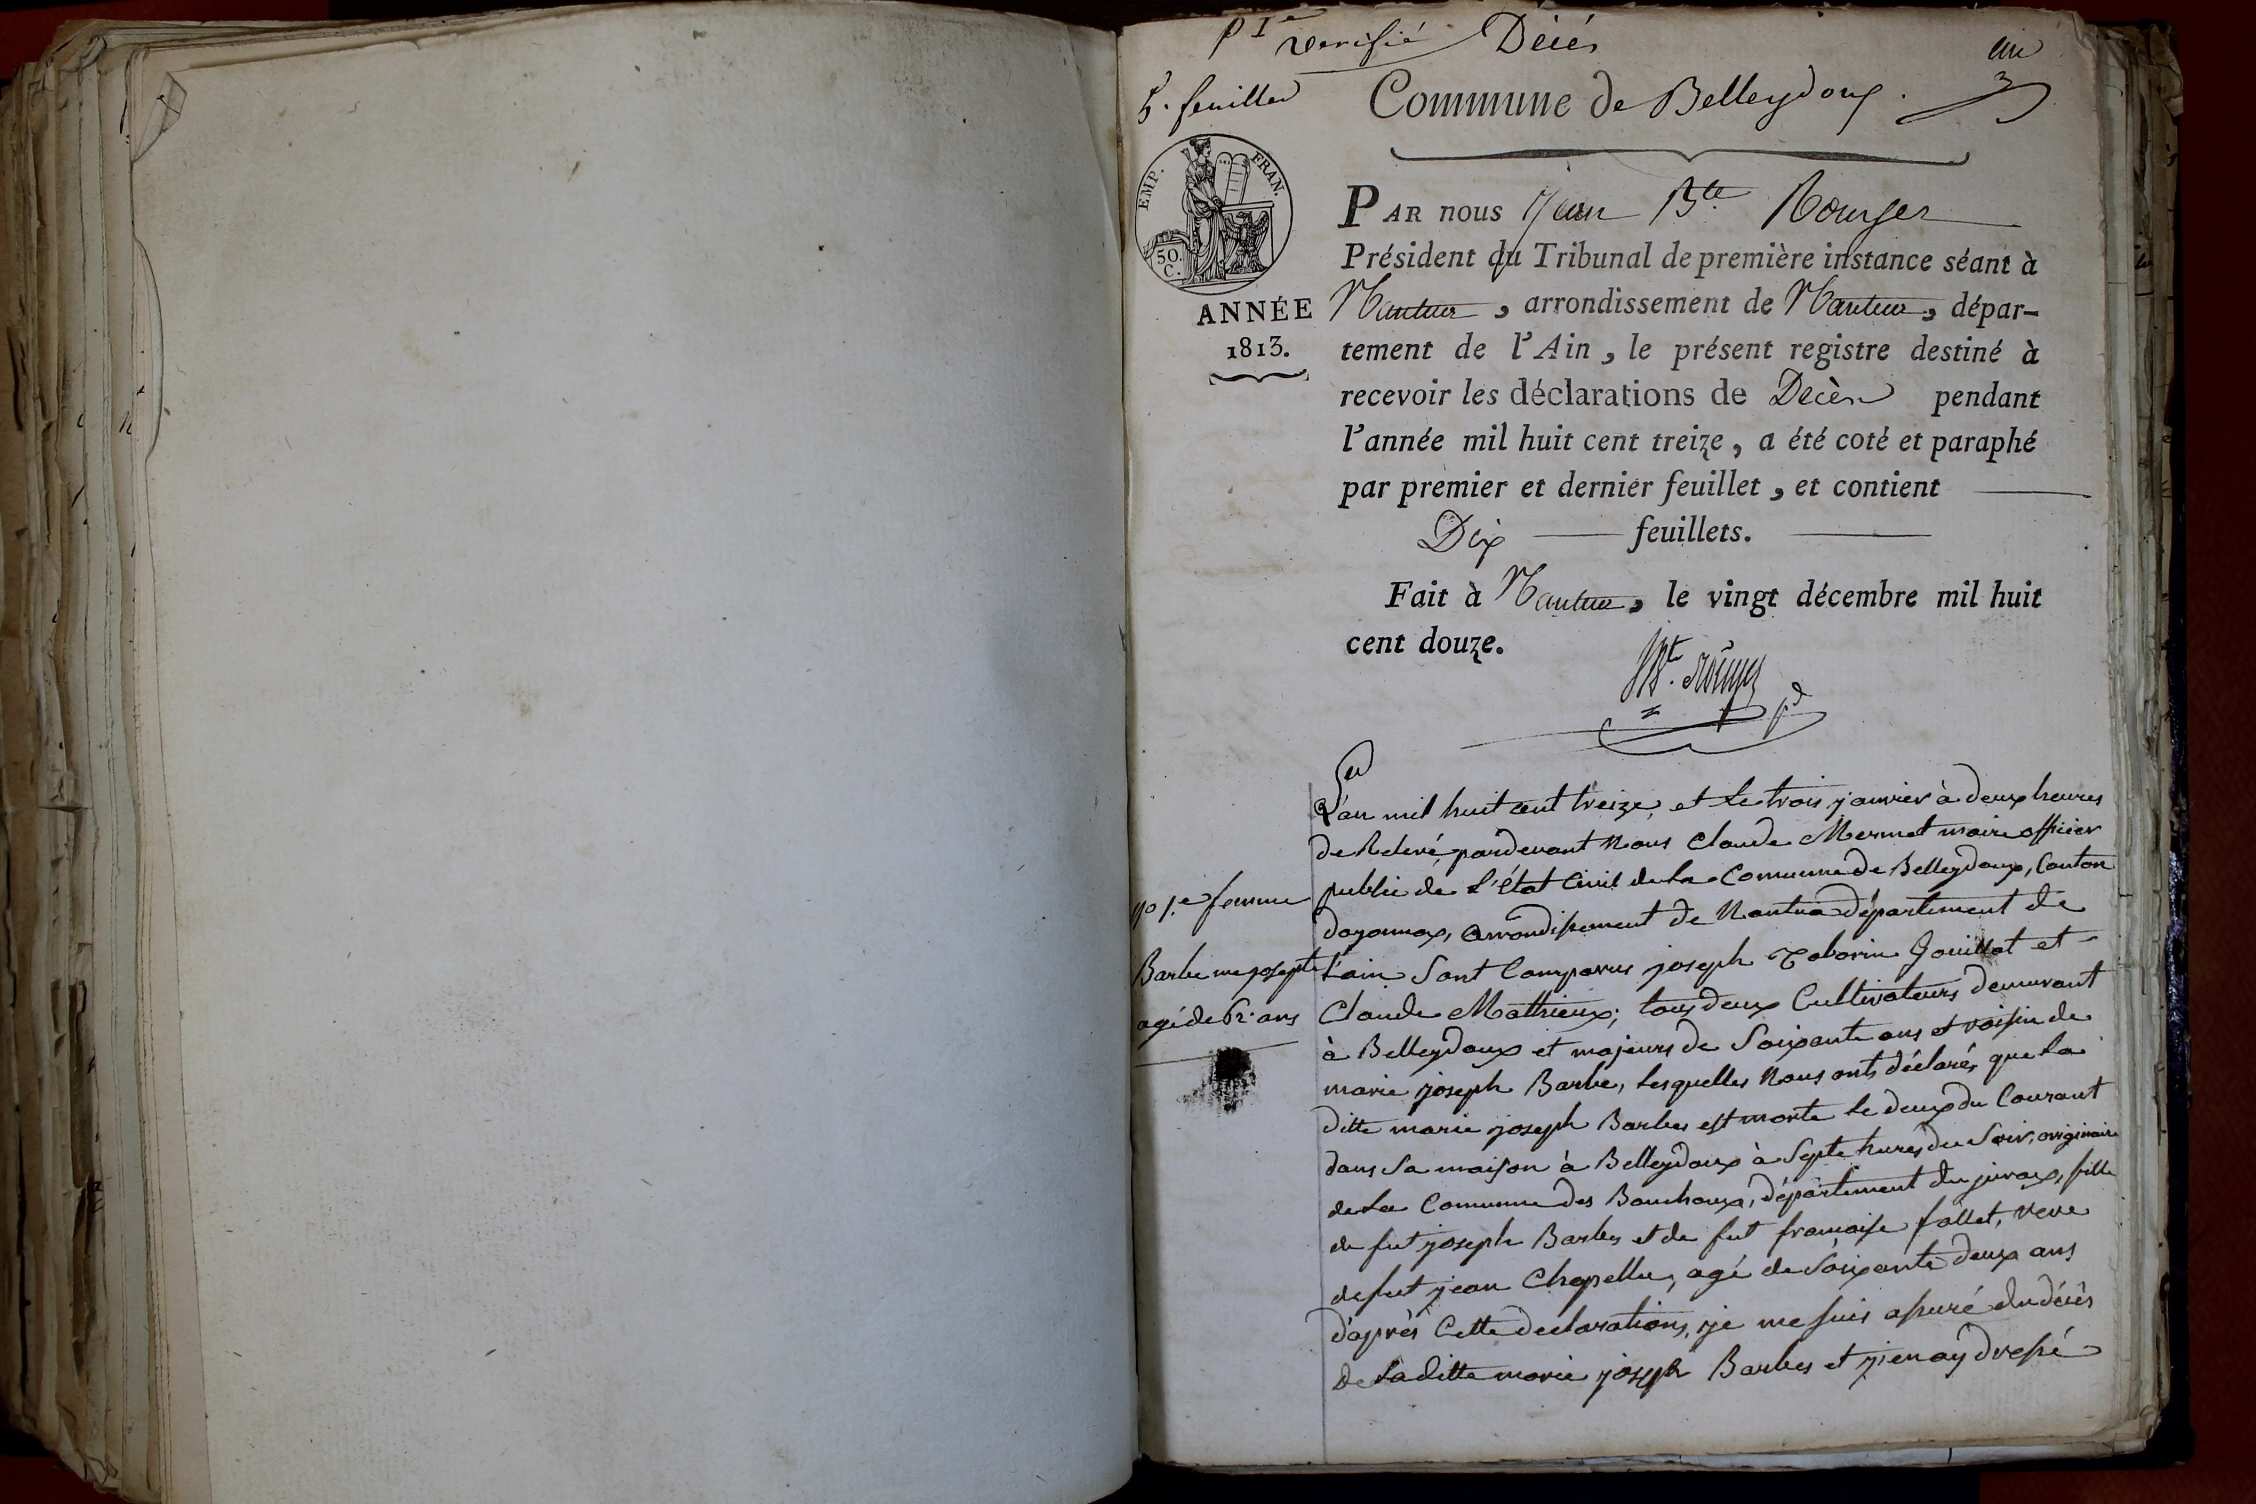 P 1re vérifié Décès
un
5. feuilles
Commune de Belleydoux.
EMP. FRAN.
50.
C.
ANNÉE
1813.
PAR nous Jean Bte Rouyer
Président du Tribunal de première instance séant à
Nantua, arrondissement de Nantua, dépar-
tement de l'Ain, le présent registre destiné à
recevoir les déclarations de Décès pendant
l'année mil huit cent treize, a été coté et paraphé
par premier et dernier feuillet, et contient
Dix feuillets.
Fait à Nantua, le vingt décembre mil huit
cent douze.
JBte. Rouyer
pd
L'an mil huit cent treize, et le trois janvier à deux heures
de Relevé, pardevant Nous Claude Mermet maire officier
public de l'état Civil de la Commune de Belleydoux, Canton
doyonnax, arrondissement de Nantua département de
l'ain Sont Comparus joseph Taborin Gouillot et
Claude Mathieux; tous deux Cultivateurs demeurant
à Belleydoux et majeurs de Soixante ans et voisin de
marie joseph Barbe, lesquelles Nous onts déclarés que la
ditte marie joseph Barbes est morte le deux du Courant
dans sa maison à Belleydoux à Septe hures du Soir, originaire
de la Commune des Bouchoux, département du juras, fille
de fut joseph Barbes et de fut françoise fallet, veve
de fut jean Chapellu, agé de Soixante deux ans
d'après Cette déclarations, je me suis assuré du décès
de la ditte marie joseph Barbes et j'en ay dressé
no 1.e femme
Barbe me joseph
agé de 62. ans